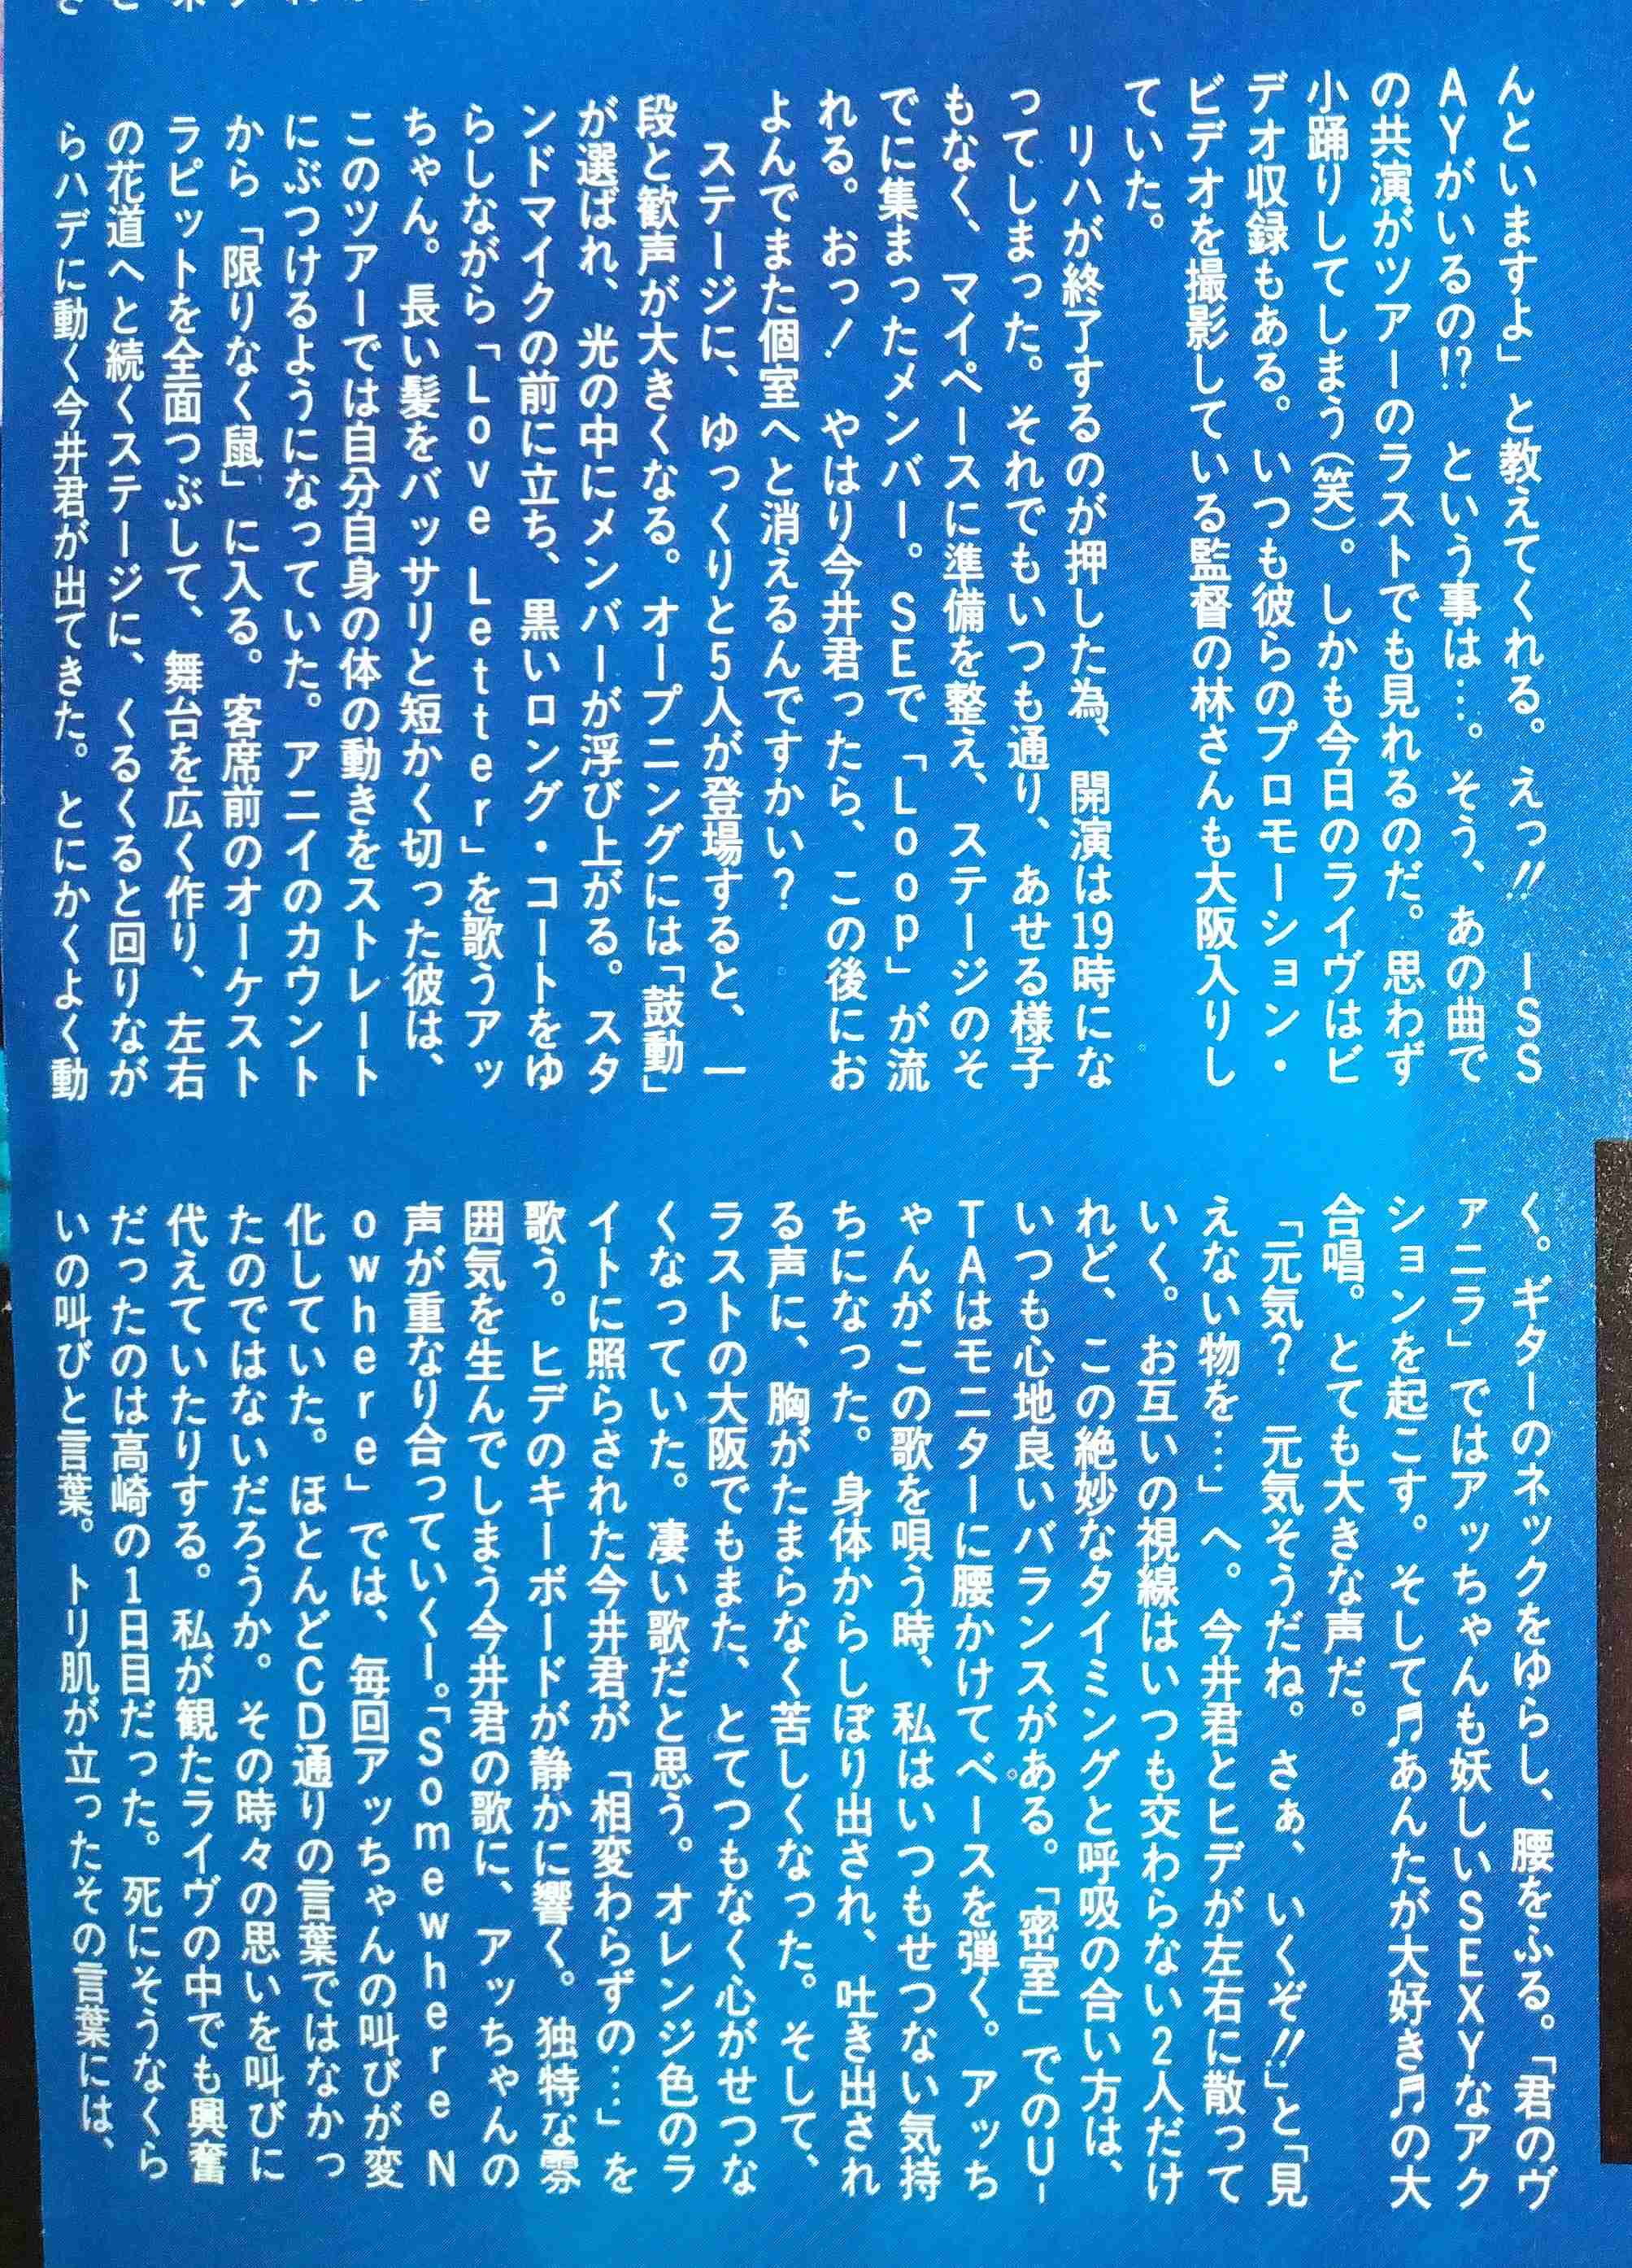 んといますよ」と教えてくれる。えっ!! ISS
AYがいるの!? という事は…。そう、あの曲で
の共演がツアーのラストでも見れるのだ。思わず
小踊りしてしまう(笑)。しかも今日のライヴはビ
デオ収録もある。いつも彼らのプロモーション・
ビデオを撮影している監督の林さんも大阪入りし
ていた。
リハが終了するのが押した為、開演は19時にな
ってしまった。それでもいつも通り、あせる様子
もなく、マイペースに準備を整え、ステージのそ
でに集まったメンバー。SEで「Loop」が流
れる。おっ! やはり今井君ったら、この後にお
よんでまた個室へと消えるんですかい?
ステージに、ゆっくりと5人が登場すると、一
段と歓声が大きくなる。オープニングには「鼓動」
が選ばれ、光の中にメンバーが浮び上がる。スタ
ンドマイクの前に立ち、黒いロング・コートをゆ
らしながら「Love Letter」を歌うアッ
ちゃん。長い髪をバッサリと短かく切った彼は、
このツアーでは自分自身の体の動きをストレート
にぶつけるようになっていた。アニイのカウント
から「限りなく鼠」に入る。客席前のオーケスト
ラピットを全面つぶして、舞台を広く作り、左右
の花道へと続くステージに、くるくると回りなが
らハデに動く今井君が出てきた。とにかくよく動
く。ギターのネックをゆらし、腰をふる。「君のヴ
ァニラ」ではアッちゃんも妖しいSEXYなアク
ションを起こす。そして♬あんたが大好き♬の大
合唱。とても大きな声だ。
「元気? 元気そうだね。さぁ、いくぞ!!」と「見
えない物を…」へ。今井君とヒデが左右に散って
いく。お互いの視線はいつも交わらない2人だけ
れど、この絶妙なタイミングと呼吸の合い方は、
いつも心地良いバランスがある。「密室」でのU-
TAはモニターに腰かけてベースを弾く。アッち
ゃんがこの歌を唄う時、私はいつもせつない気持
ちになった。身体からしぼり出され、吐き出され
る声に、胸がたまらなく苦しくなった。そして、
ラストの大阪でもまた、とてつもなく心がせつな
くなっていた。凄い歌だと思う。オレンジ色のラ
イトに照らされた今井君が「相変わらずの…」を
歌う。ヒデのキーボードが静かに響く。独特な雰
囲気を生んでしまう今井君の歌に、アッちゃんの
声が重なり合っていくー。「Somewhere N
owhere」では、毎回アッちゃんの叫びが変
化していた。ほとんどCD通りの言葉ではなかっ
たのではないだろうか。その時々の思いを叫びに
代えていたりする。私が観たライヴの中でも興奮
だったのは高崎の1日目だった。死にそうなくら
いの叫びと言葉。トリ肌が立ったその言葉には、